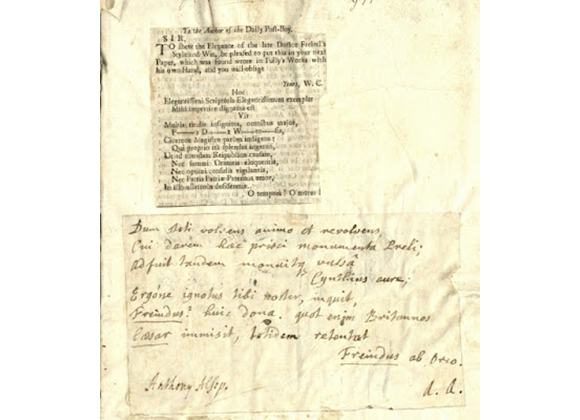 To the Author of the Daily Post-Boy.
SIR,
TO shew the Elegance of the late Doctor Freind's
Style and Wit, be pleased to put this in your next
Paper, which was found wrote in Tully's Works with
his own Hand, and you will oblige
Yours, W. C.
Hoc
Elegantissimi Scriptoris Elegantissimum exemplar
Mihi impertire dignatus est
Vir
Multis titulis insignitus, omnibus major,
Ciceronis Magister parum indigens:
Qui proprio sit splendens ingenio,
Ut ad consilium Reipublicæ
Nec summi Oratoris eloquentia,
Nec optimi consulis vigilantia,
Nec Patris Patriæ Paternus amor,
In illo
O tempora! O mores!
Dum steti volvens animo et revolvens
Cui darem hæc prisci monumenta Preli;
Adfuit tandem
Cynthius aure;
Ergóne ignotus tibi noster, inquit,
Freindus? huic dona. quot enim Britannos
Cæsar immisit, totidem retentat
Freindus ab Orco.
Anthony Alsop.
A. A.